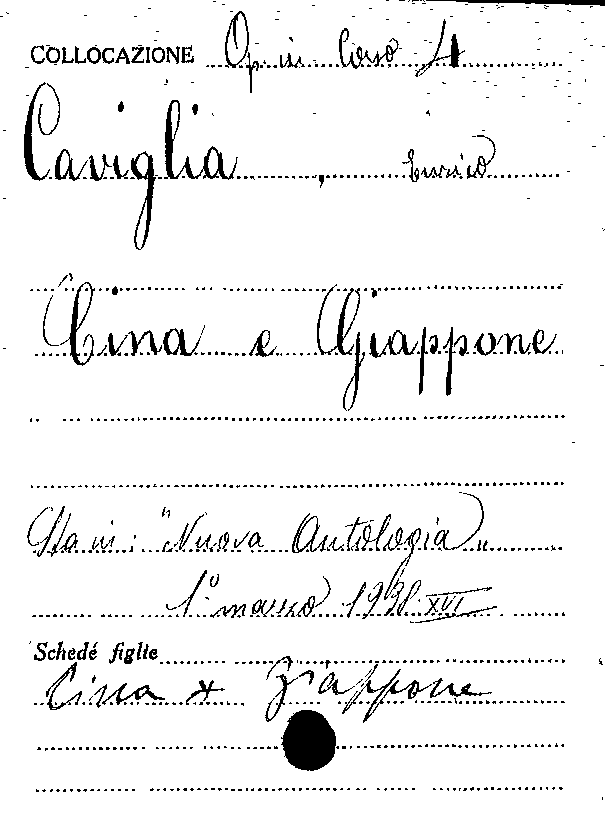 COLLOCAZIONE Op in Corso 4
Caviglia, Enrico
Cina e Giappone
Sta in: "Nuova Antologia"
1° marzo 1938 XVI
Schede figlie
Cina + Giappone